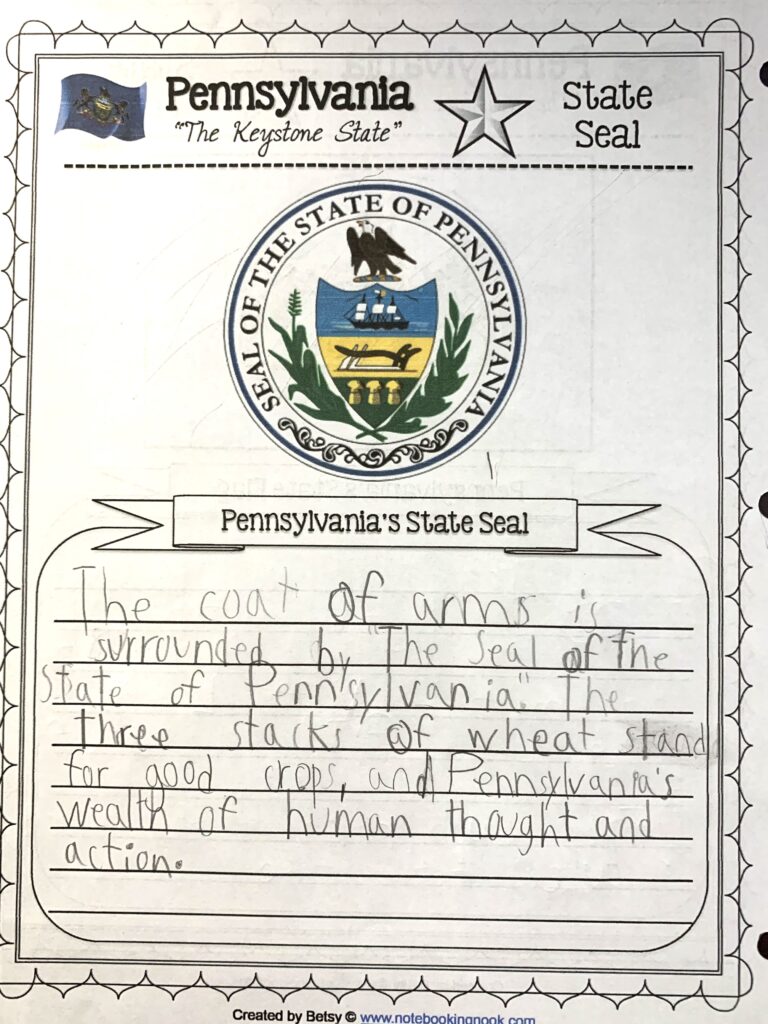 Pennsylvania
"The Keystone State"
State
Seal
SEAL OF THE STATE OF PENNSYLVANIA
Pennsylvania's State Seal
The coat of arms is
surrounded by "The Seal of the
State of Pennsylvania". The
three stacks of wheat stand
for good crops, and Pennsylvania's
wealth of human thought and
action.
Created by Betsy © www.notebookingnook.com